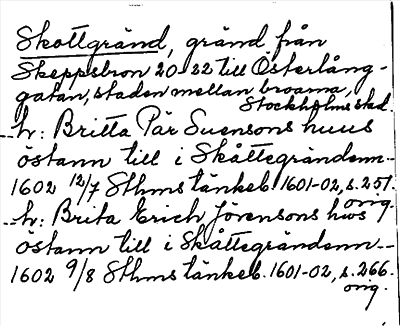 Skottgränd, gränd från
Skeppsbron 20-22 till Österlång-
gatan, staden mellan broarna,
Stockholms stad.
h: Britta Pär Suensons huus
östann till i Skåttegrändenn--
1602 12/7 Sthms tänkeb. 1601-02, s. 257.
orig.
--h: Brita Erich Jörensons hws
östann till i Skåttegrändenn--
1602 9/8 Sthms tänkeb. 1601-02, s. 266.
orig.